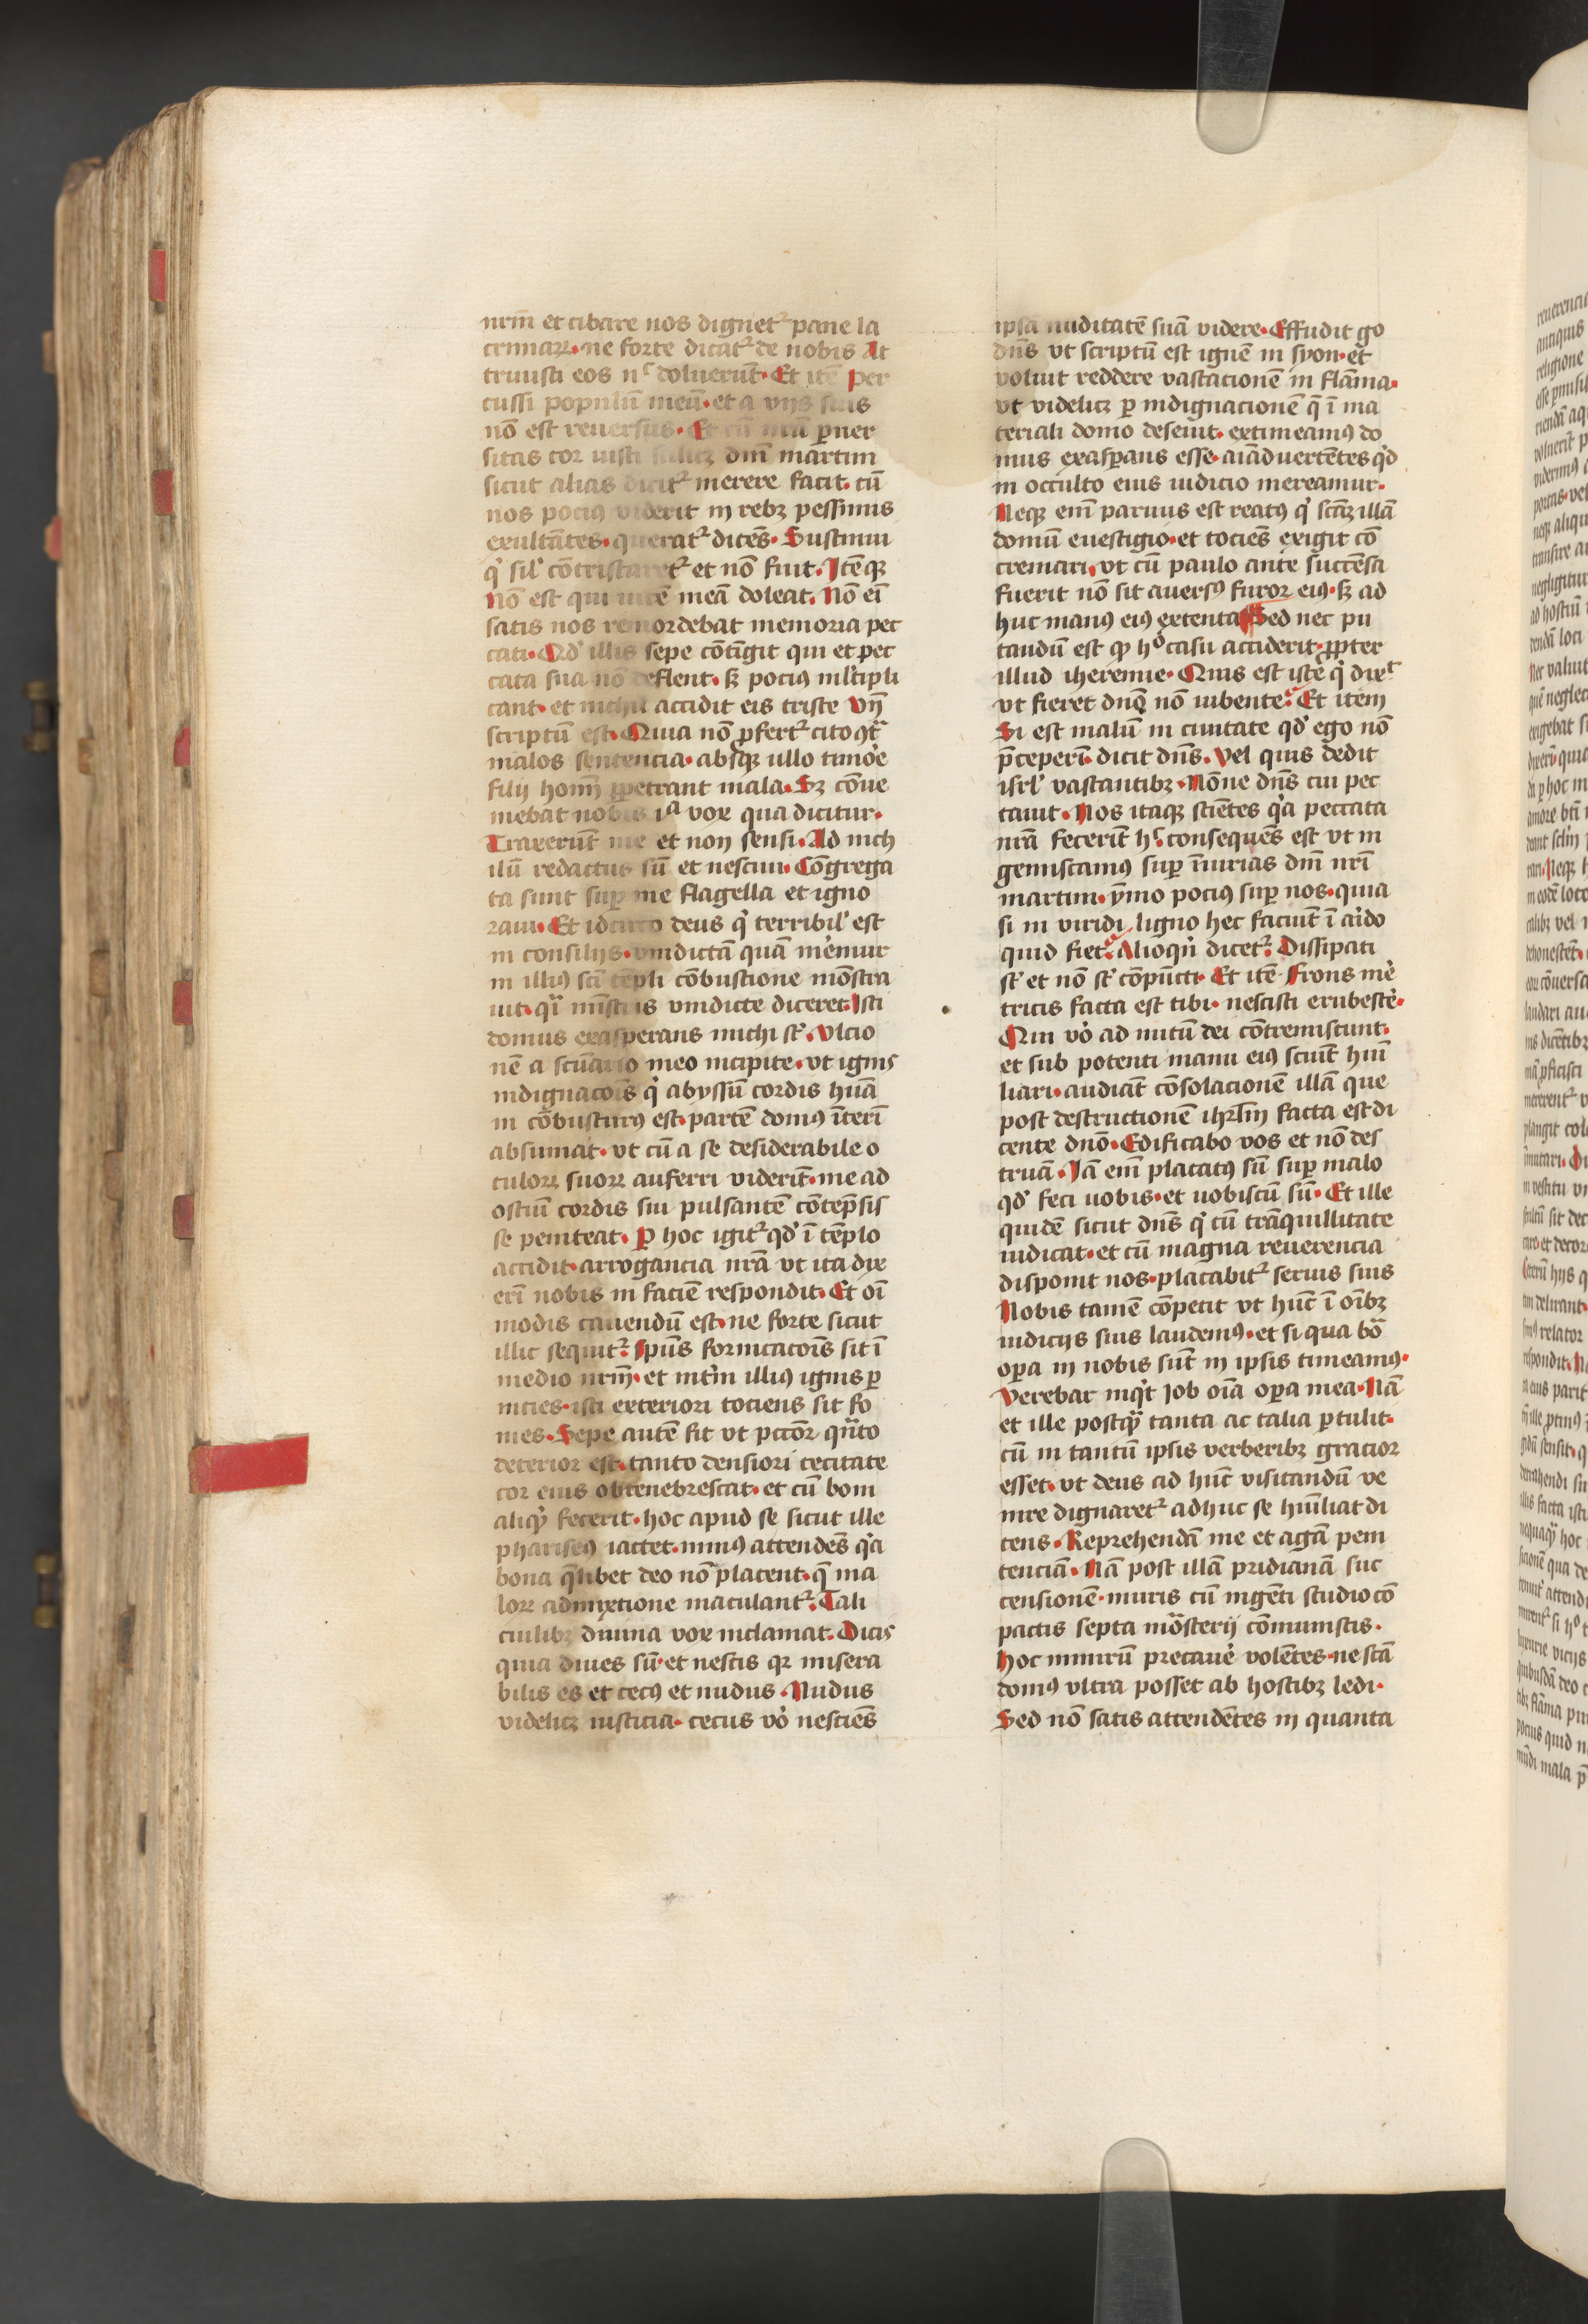 nrm̄ et cibare nos dignet᷑ pane la
crimaꝝ. ne forte dicat᷑ de nobis At
triuisti eos nͨ doluerūt. Et itē Per
cussi populū meū. et a vijs suis
nō est reuersus. Et cū ꝑuer
sitas cor iusti dnī martini
sicut alias dicit᷑ merere facit. cū
nos pociꝰ viderit in rebꝫ pessimis
exultātes. querat᷑ dicēs. Sustinui
qͥ sil̉ cōtristaret᷑ et nō fuit. Itēqꝫ
Nō est qui vicē meā doleat. Nō eī
satis nos remordebat memoria pec
cati. Qd̉ illis sepe cōtigit qui et pec
cata sua nō deflent. sꝫ pociꝰ ml̉tipli
cant. et nichil accidit eis triste Vn̄
scriptū est. Quia nō ꝓfert᷑ cito ꝯtͣ
malos sentencia. absqꝫ ullo timo̓e
filij homī ꝑpetrant mala. Sꝫ cōue
niebat nobis iͣ vox qua dicitur.
Traxerūt me et non sensi. Ad nich
ilū redactus sū et nesciui. Cōgrega
ta sunt suꝑ me flagella et igno
raui. Et idcirco deus qͥ terribil̉ est
in consilijs. vindictā quā me̓mur
in illiꝰ scī tēpli cōbustione mōstra
uit. qͣi mīstris vindicte diceret. Isti
domus exasperans michi st̉. Vlcio
nē a scūario meo incipite. vt ignis
indignacoīs qͥ abyssū cordis hūa
ni cōbusturꝰ est. partē domꝰ īterī
absumat. vt cū a se desiderabile o
culoꝝ suoꝝ auferri viderīt. me ad
ostiū cordis sui pulsantē cōtēpsis
se peniteat. Ꝑ hoc igit᷑ qd̉ ī tēplo
accidit. arrogancia nrā vt ita dixe
erī nobis in faciē respondit. Et oī
modis cauendū est. ne forte sicut
illic sequit᷑. Spūs fornicacoīs sit ī
medio nrm̄. et int̓im illiꝰ ignis ꝑ
nicies. isti exteriori tociens sit fo
mes. Sepe autē fit vt pctor̄ qn̄to
deterior est. tanto densiori cecitate
cor eius obtenebrescat. et cū boni
aliqͥd fecerit. hoc apud se sicut ille
phariseꝰ iactet. minꝰ attendēs qͥa
bona qͣlibet deo nō placent. qͣ ma
loꝝ admixtione maculant᷑. Tali
cuilibꝫ diuina vox inclamat. Dicis
quia diues sū. et nescis qꝛ misera
bilis es et cecꝰ et nudus. Nudus
videlicꝫ iusticia. cecus vo̓ nesciēs
ipsā nuditatē suā videre. Effudit g̊
dn̄s vt scriptū est ignē in syon. et
voluit reddere vastacionē in flāma.
vt videlicꝫ ꝑ indignacionē q̄ ī ma
teriali domo deseuit. extimeamꝰ do
mus exasꝑans esse. aīaduertētes qd̓
in occulto eius iudicio mereamur.
Neqꝫ enī paruus est reatꝰ qͥ scāꝫ illā
domū euestigio. et tociēs exigit cō
cremari. vt cū paulo ante succēsa
fuerit nō sit auersꝰ furor eiꝰ. sꝫ ad
huc manꝰ eiꝰ extenta Sed nec pu
tandū est ꝙ hͦ casu acciderit. ꝓpter
illud iheremie. Quis est iste qͥ dixͭ
vt fieret dnō nō iubente. Et item
Si est malū in ciuitate qd̉ ego nō
p̄ceperī. dicit dn̄s. Vel quis dedit
isrl̉ vastantibꝫ. Nōne dn̄s cui pec
cauit. Nos itaqꝫ sciētes qͥa peccata
nrā fecerīt hͨ. consequēs est vt in
gemiscamus suꝑ īiurias dnī nrī
martini. ymo pociꝰ suꝑ nos. quia
si in viridi ligno hec faciūt ī aͥido
quid fiet. Alioqͥn dicet᷑. Dissipati
st̉ et nō st̉ cōpūcti. Et itē Frons me̓
tricis facta est tibi. nescisti erubesce̓.
Qui vo̓ ad nutū dei cōtremiscunt.
et sub potenti manu eiꝰ sciūt huī
liari. audiāt cōsolacionē illā que
post destructionē ihrl̄m facta est di
cente dnō. Edificabo vos et nō des
truā. Iā enī placatꝰ sū suꝑ malo
qd̉ feci uobis. et uobiscū sū. Et ille
quidē sicut dn̄s qͥ cū trāquillitate
iudicat. et cū magna reuerencia
disponit nos. placabit᷑ seruis suis
Nobis tamē cōpetit vt hūc ī oībꝫ
iudicijs suis laudemꝰ. et si qua bōa
oꝑa in nobis sūt in ipsis timeamꝰ.
Verebar inqͥt Job oīa oꝑa mea. Nā
et ille postqͣ̄ tanta ac talia ꝑtulit.
cū in tantū ipsis verberibꝫ gracior
esset. vt deus ad hūc visitandū ve
nire dignaret᷑ adhuc se humīliat di
cens. Reprehendā me et agā peni
tenciā. Nā post illā pridianā suc
censionē. muris cū ingēti studio cō
pactis septa mōsterij cōmunistis.
Hoc nimirū precaue̓ volētes. ne scā
domꝰ vltra posset ab hostibꝫ ledi.
Sed nō satis attendētes in quanta